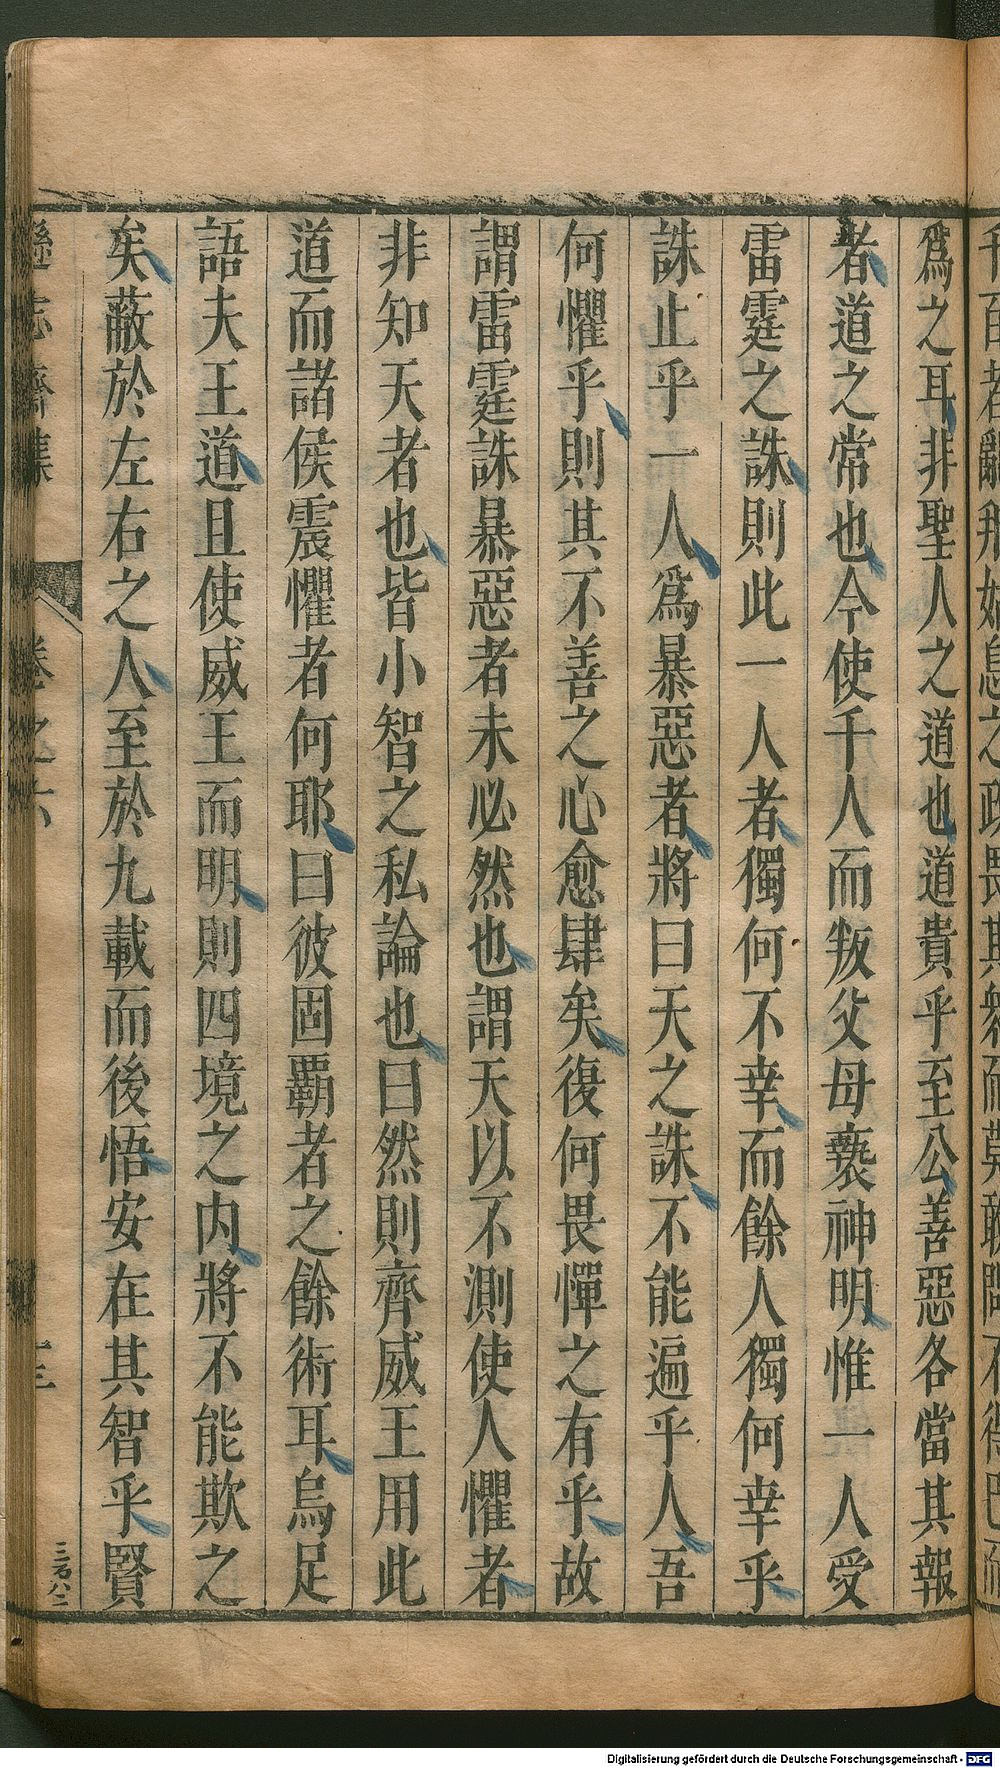 爲之耳非聖人之道也道貴乎至公善惡各當其報
者道之常也今使千人而叛父母褻神明惟一人受
雷霆之誅則此一人者獨何不幸而餘人獨何幸乎
誅止乎一人爲暴惡者將曰天之誅不能遍乎人吾
何懼乎則其不善之心愈肆矣復何畏憚之有乎故
謂雷霆誅暴惡者未必然也謂天以不測使人懼者
非知天者也皆小智之私論也曰然則齊威王用此
道而諸侯震懼者何耶曰彼固覇者之餘術耳烏足
語夫王道且使威王而明則四境之内將不能欺之
矣蔽於左右之人至於九載而後悟安在其智乎賢
遜志齋集
卷之六
三百八二
Digitalisierung gefördert durch die Deutsche Forschungsgemeinschaft - DFG